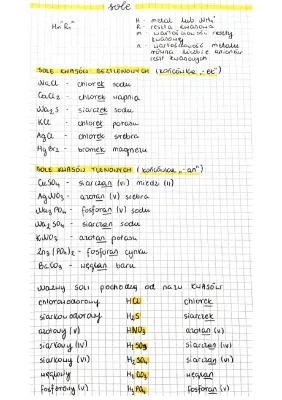 sole
MnRm
M - metal lub NH₄⁺
R - reszta kwasowa
m - wartościowość reszty kwasowej
n - wartościowość metalu
równa liczbie anionów
reszt kwasowych
SOLE KWASÓW BEZTLENOWYCH (końcówka "-ek")
NaCl - chlorek sodu
CaCl₂ - chlorek wapnia
Na₂S - siarczek sodu
KCl - chlorek potasu
AgCl - chlorek srebra
MgBr₂ - bromek magnezu
SOLE KWASÓW TLENOWYCH (końcówka "-an")
CuSO₄ - siarczan (VI) miedzi (II)
AgNO₃ - azotan (V) srebra
Na₃PO₄ - fosforan (V) sodu
Na₂SO₄ - siarczan sodu
KNO₃ - azotan potasu
Zn₃(PO₄)₂ - fosforan cynku
BaCO₃ - węglan baru
nazwy soli pochodzą od nazw kwasów
chlorowodorowy HCl chlorek
siarkowodorowy H₂S siarczek
azotowy (V) HNO₃ azotan (V)
siarkowy (IV) H₂SO₃ siarczan (IV)
siarkowy (VI) H₂SO₄ siarczan (VI)
węglowy H₂CO₃ węglan
fosforowy (V) H₃PO₄ fosforan (V)